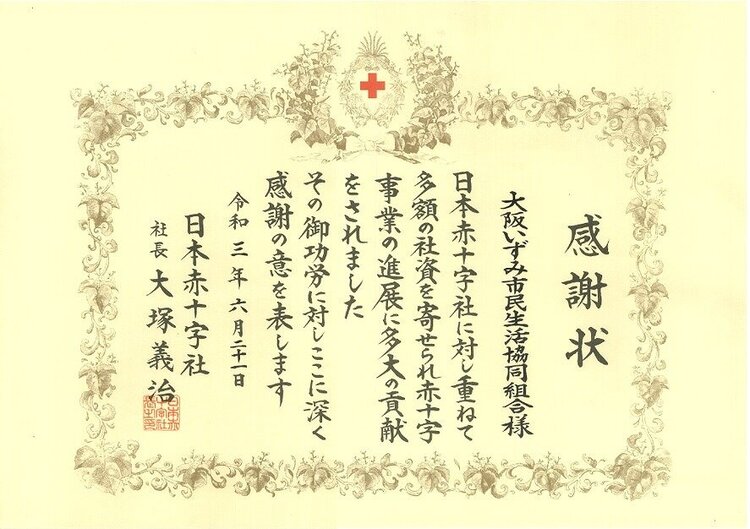 感謝状
大阪いずみ市民生活協同組合様
日本赤十字社に対し重ねて
多額の社資を寄せられ赤十字
事業の進展に多大の貢献
をされました
その御功労に対しここに深く
感謝の意を表します
令和三年六月二十一日
日本赤十字社
社長 大塚義治